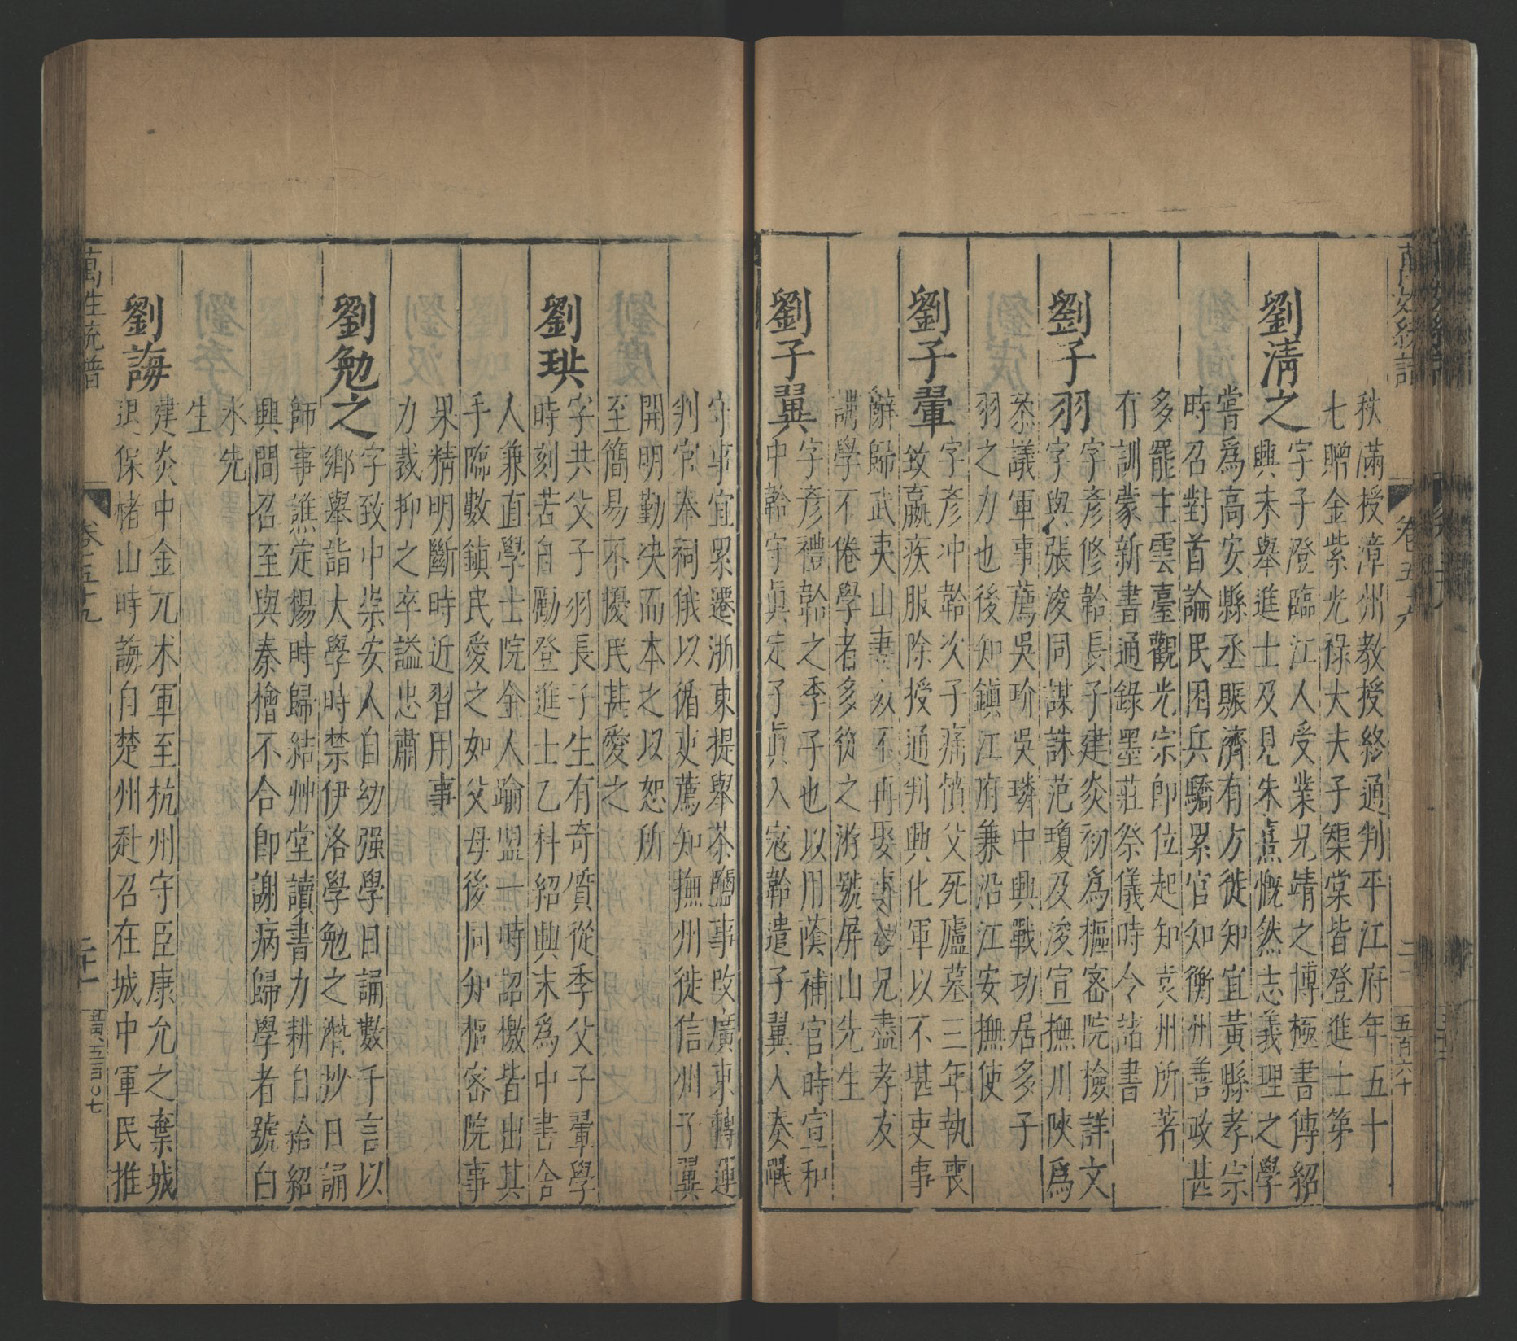 秩滿授漳州教授終通判平江府年五十
七贈金紫光祿大夫子槩棠皆登進士第
劉清之
字子澄臨江人受業兄靖之博極書傳紹
興末舉進士及見朱熹慨然志義理之學
嘗爲高安縣丞賑濟有方徙知宜黃縣孝宗
時召對首論民困兵驕累官知衡州善政甚
多罷主雲臺觀光宗即位起知袁州所著
有訓蒙新書通錄墨莊祭儀時令誥書
劉子羽
字彥修韐長子建炎初爲樞密院檢詳文
字與張浚同謀誅范瓊及浚宣撫川陝爲
叅議軍事薦吳玠吳璘中興戰功居多子
羽之力也後知鎮江府兼沿江安撫使
劉子翬
字彥冲韐次子痛憤父死廬墓三年執喪
致羸疾服除授通判興化軍以不堪吏事
辭歸武夷山妻歿不再娶事兄盡孝友
講學不倦學者多從之游號屏山先生
劉子翼
字彥禮韐之季子也以用蔭補官時宣和
中韐守眞定子眞入寇韐遣子翼入奏嘱
守事宜累遷浙東提舉茶鹽事改廣東轉運
判官奉祠俄以循吏薦知撫州徙信州子翼
開明勤决而本之以恕所
至簡易不擾民甚愛之
劉珙
字共父子羽長子生有奇質從季父子翬學
時刻苦自勵登進士乙科紹興末爲中書舍
人兼直學士院金人踰盟一時詔檄皆出其
手臨數鎮民愛之如父母後同知樞密院事
果精明斷時近習用事
力裁抑之卒謚忠肅
劉勉之
字致中崇安人自幼强學日誦數千言以
鄉舉詣大學時禁伊洛學勉之潛抄日誦
師事譙定楊時歸結艸堂讀書力耕自給紹
興間召至與秦檜不合即謝病歸學者號白
水先
生
劉誨
建炎中金兀朮軍至杭州守臣康允之棄城
退保楮山時誨自楚州赴召在城中軍民推
萬姓統譜
卷五十九